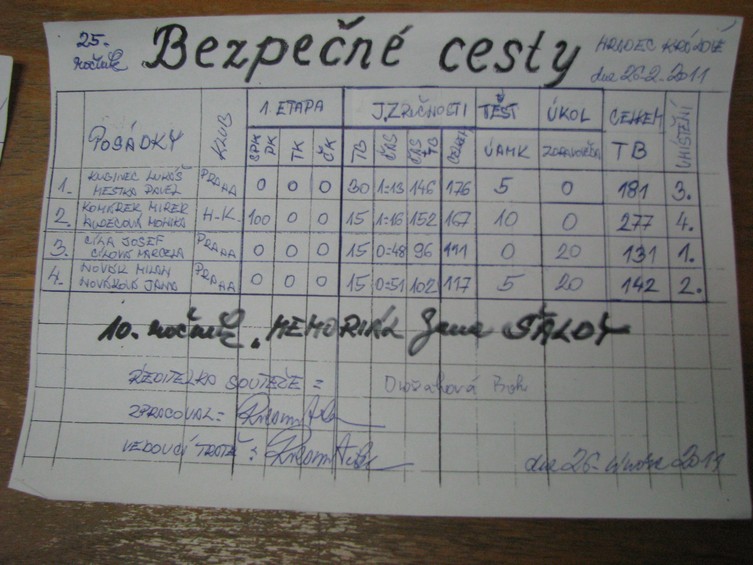 25. ročník Bezpečné cesty HRADEC KRÁLOVÉ
dne 26-2-2011
POSÁDKY KLUB 1. ETAPA J.ZRUČNOSTI TĚST ÚKOL CELKEM UMÍSTĚNÍ
SPK PK TK ČK TB ČAS ČAS TB CELKEM ÚAMK ZDRAVOVĚDA TB
1. LUKÁŠ PRAHA 0 0 0 30 1:13 146 176 5 0 181 3.
MESTKA PAVEL
2. KOMÁREK MIREK H-K. 100 0 0 15 1:16 152 167 10 0 277 4.
MONIKA
3. CÍHA JOSEF PRAHA 0 0 0 15 0:48 96 111 0 20 131 1.
CÍHOVÁ MARCELA
4. NOVÁK MILAN PRAHA 0 0 0 15 0:51 102 117 5 20 142 2.
NOVÁKOVÁ JANA
10. ročník „MEMORIÁL Jana ŠÁLDY
ŘEDITELKA SOUTĚŽE = Dvořáková
ZPRACOVAL =
VEDOUCÍ TRATĚ :
dne 26- února 2011